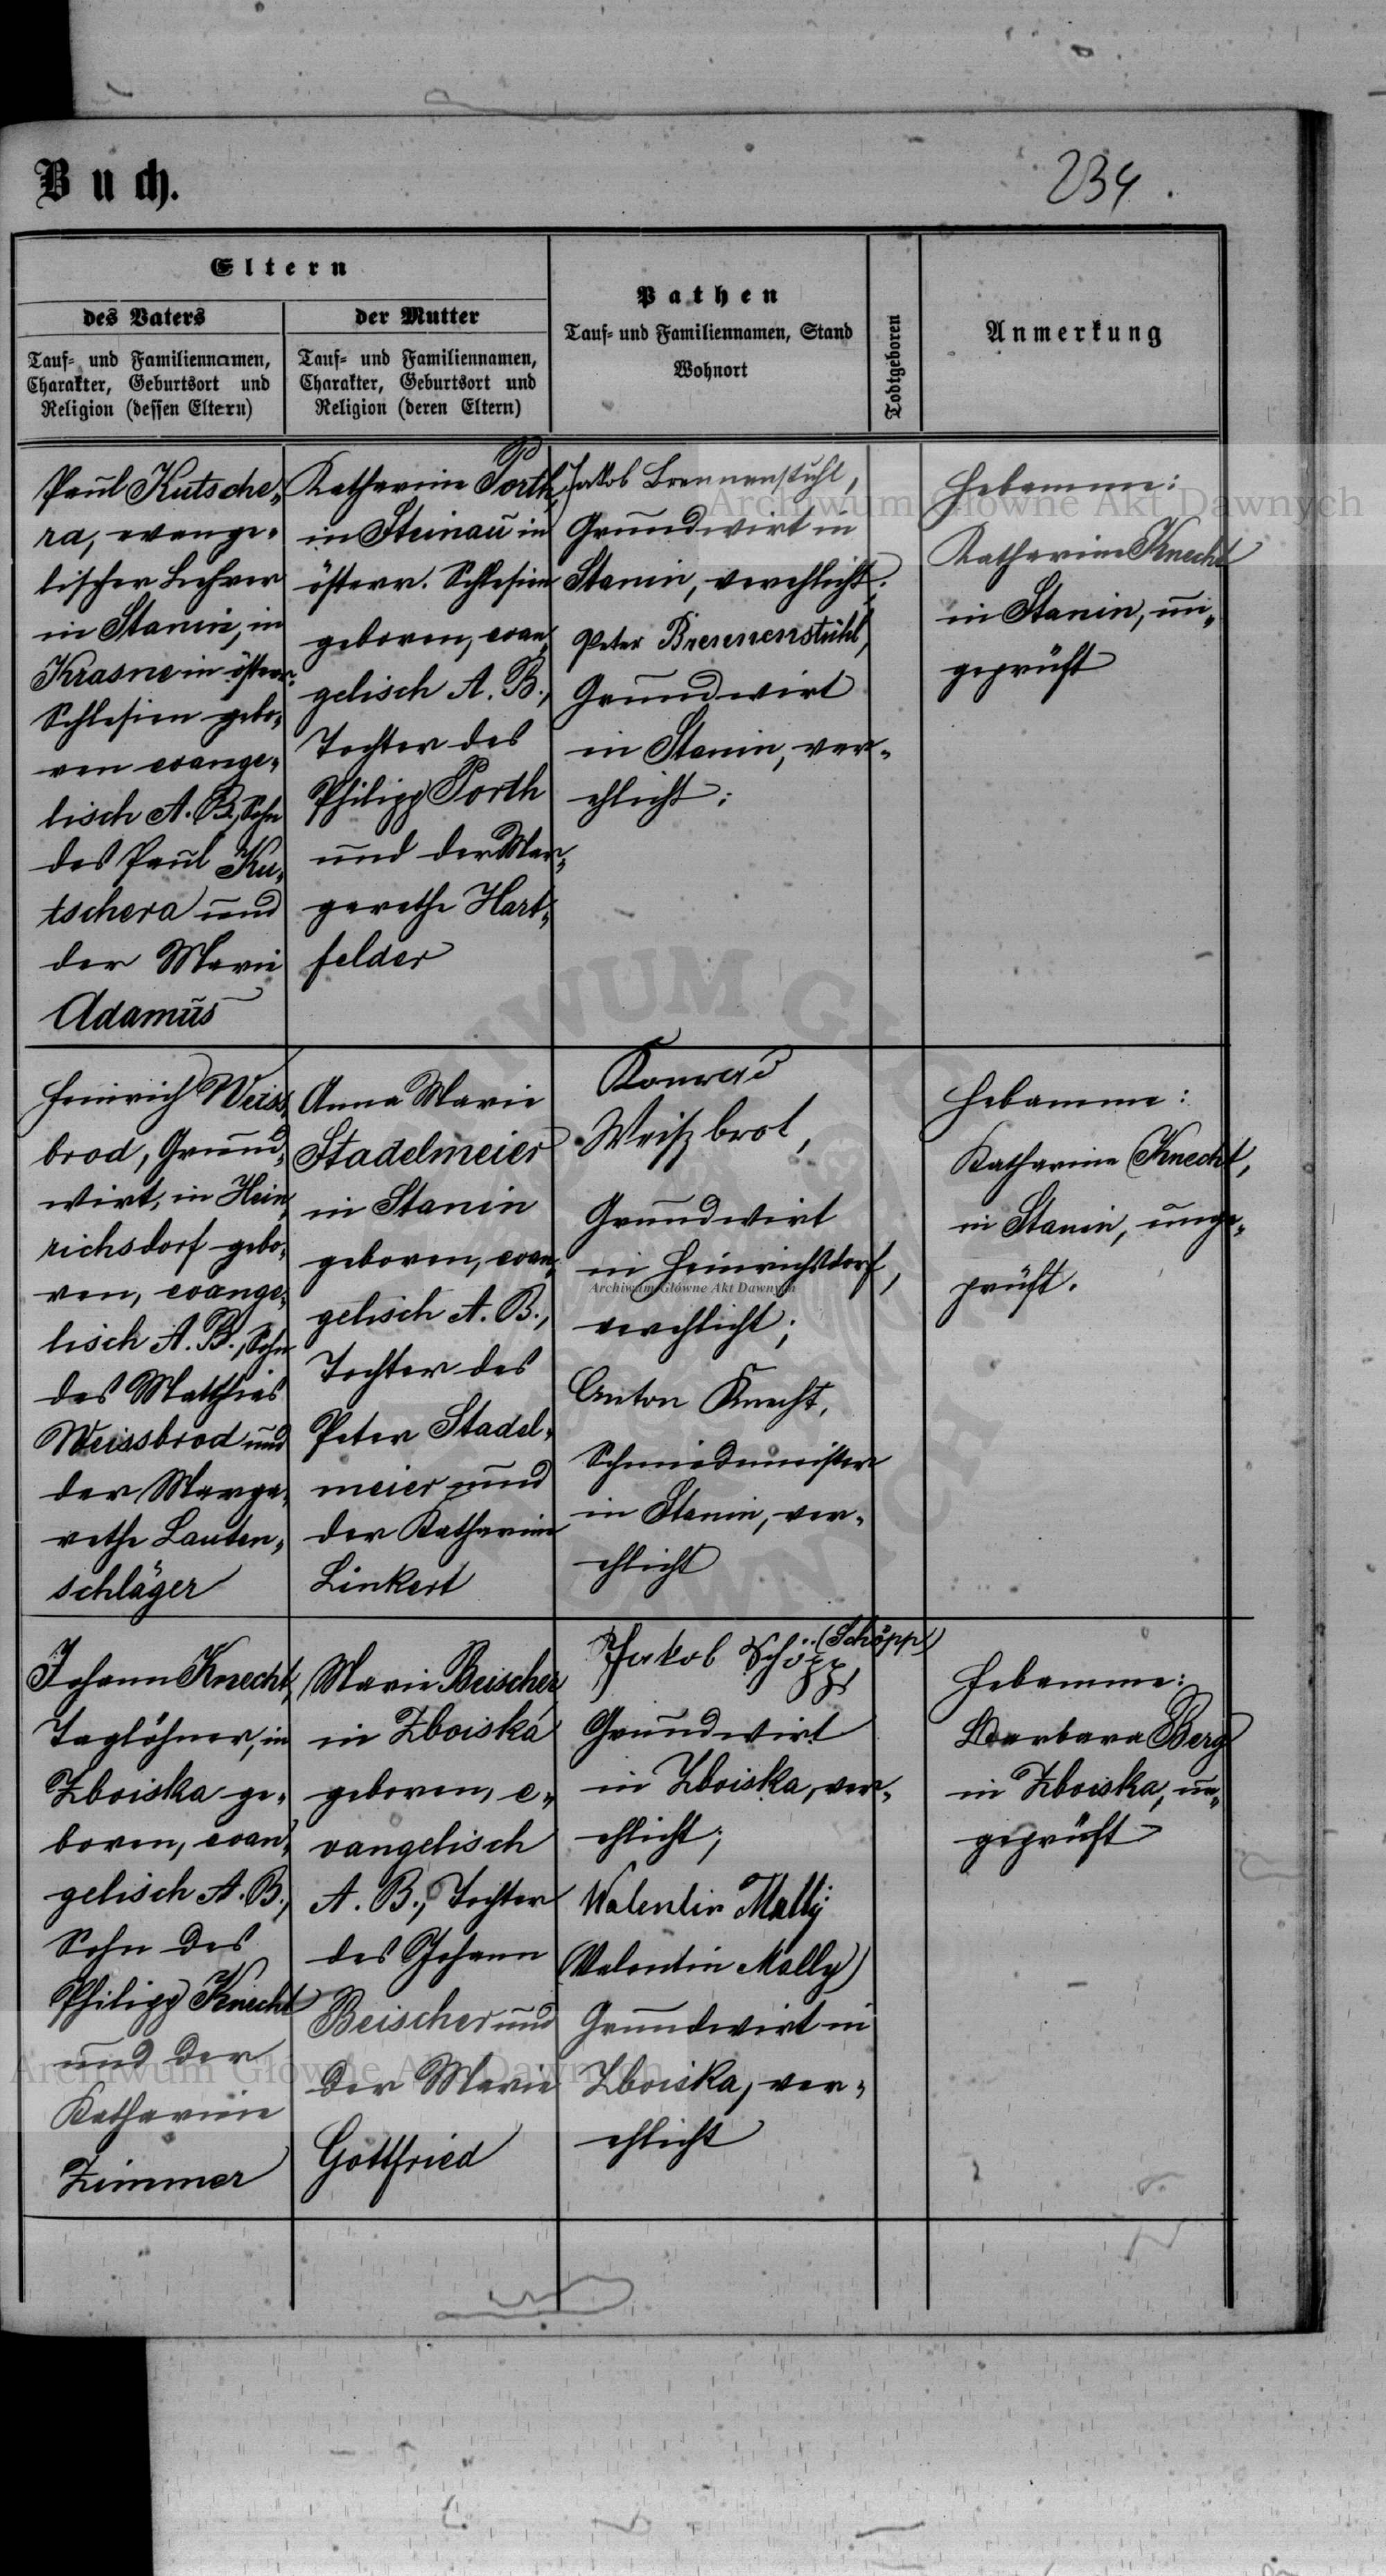 Buch.
234.
Eltern
des Vaters
Tauf- und Familiennamen,
Charakter, Geburtsort und
Religion (dessen Eltern)
der Mutter
Tauf- und Familiennamen,
Charakter, Geburtsort und
Religion (deren Eltern)
Pathen
Tauf- und Familiennamen, Stand
Wohnort
Todtgeboren
Anmerkung
Paul Kutsche-
ra, evange-
lischer Lehrer
in Stanin, in
Krasne in österr.
Schlesien gebo-
ren evange-
lisch A. B., Sohn
des Paul Ku-
tschera und
der Marie
Adamus
Katharine Porth,
in Steinau in
österr. Schlesien
geboren, evan-
gelisch A. B.,
Tochter des
Philipp Porth
und der Mar-
garethe Hart-
felder
Jakob Brennenstuhl,
Grundwirt in
Stanin, verehlicht;
Peter Brennenstuhl,
Grundwirt
in Stanin, ver-
ehlicht;
Hebamme:
Katharine Knecht
in Stanin, un-
geprüft
Heinrich Weiss-
brod, Grund-
wirt, in Hein-
richsdorf gebo-
ren, evange-
lisch A. B., Sohn
des Matthias
Weissbrod und
der Marga-
rethe Lauten-
schläger
Anna Marie
Stadelmeier
in Stanin
geboren, evan-
gelisch A. B.,
Tochter des
Peter Stadel-
meier und
der Katharine
Linkert
Konrad
Weißbrot,
Grundwirt
in Heinrichsdorf,
verehlicht;
Anton Knecht,
Schmiedemeister
in Stanin, ver-
ehlicht
Hebamme:
Katharine Knecht,
in Stanin, unge-
prüft.
Johann Knecht,
Taglöhner, in
Zboiska ge-
boren, evan-
gelisch A. B.,
Sohn des
Philipp Knecht
und der
Katharine
Zimmer
Marie Beischer
in Zboiska
geboren, e-
vangelisch
A. B., Tochter
des Johann
Beischer und
der Marie
Gottfried
Jakob Schöpp, (Schöpp)
Grundwirt
in Zboiska, ver-
ehlicht;
Walentin Mally
(Valentin Mally)
Grundwirt in
Zboiska, ver-
ehlicht
Hebamme:
Barbara Berg
in Zboiska, un-
geprüft
Archiwum Główne Akt Dawnych
Archiwum Główne Akt Dawnych
Archiwum Główne Akt Dawnych